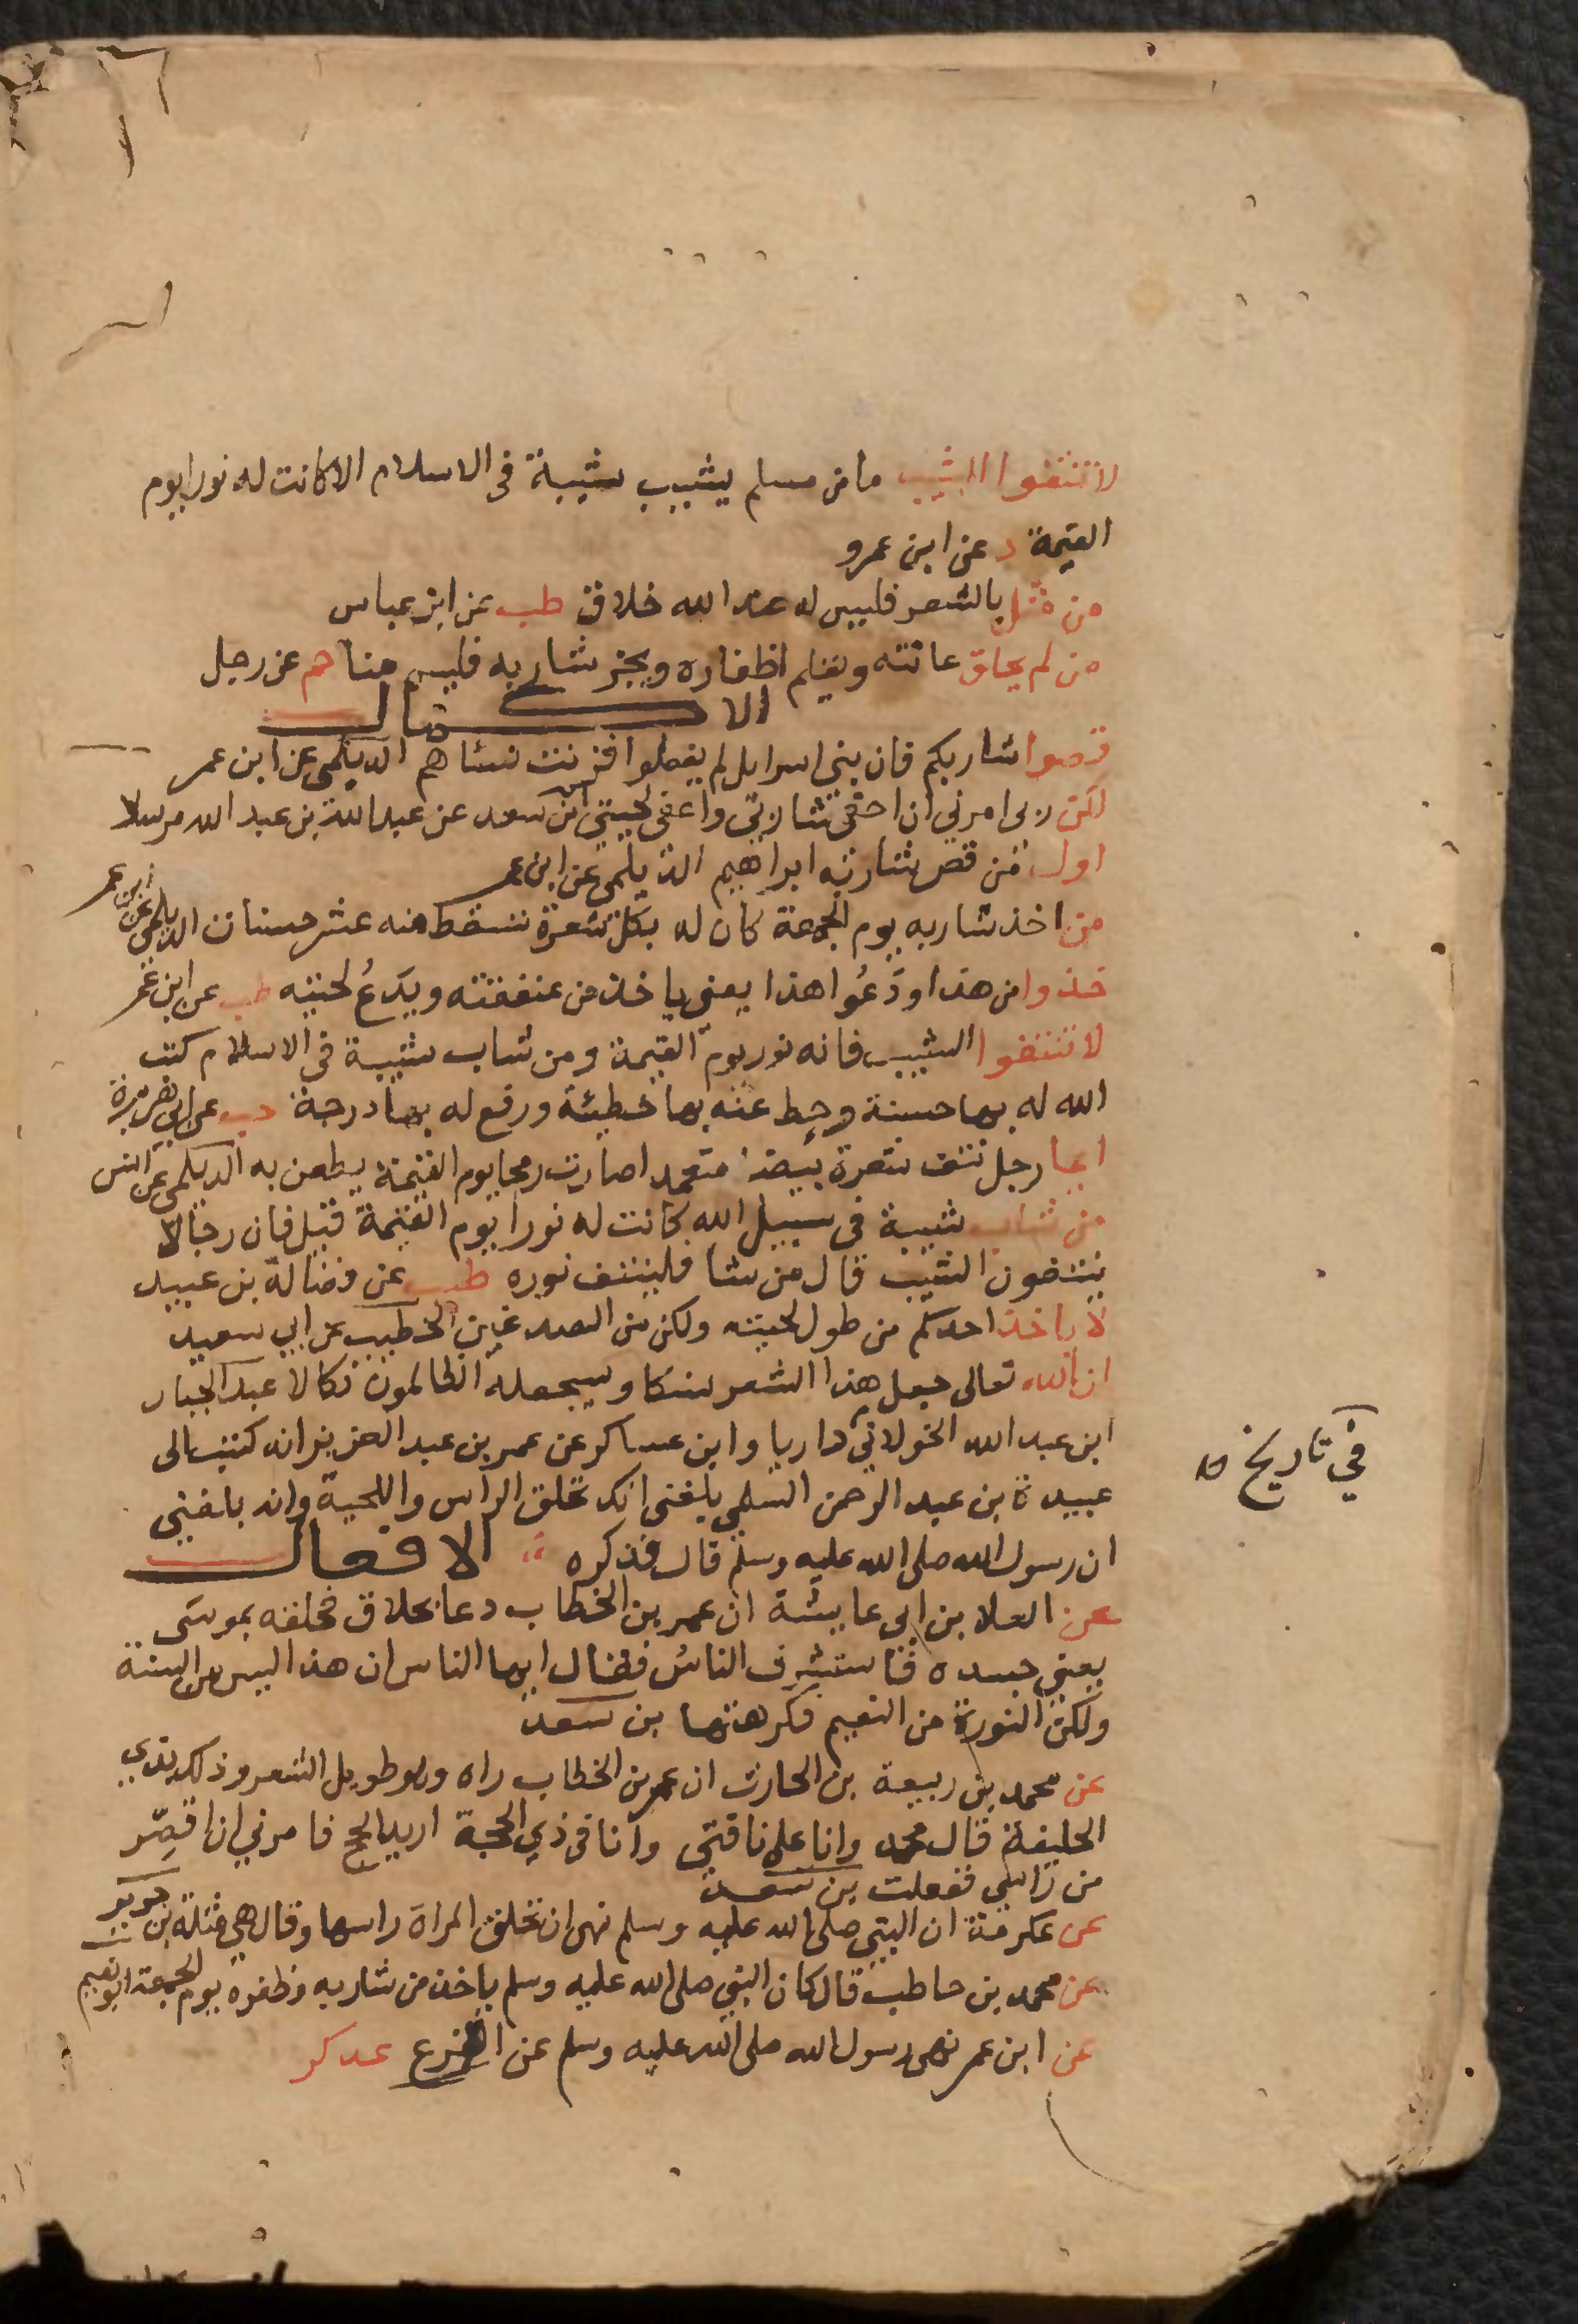 لا تنتفوا الشيب ما من مسلم يشيب شيبة في الاسلام الا كانت له نورا يوم
القيمة د عن ابن عمرو
من مثل بالشعر فليس له عند الله خلاق طب عن ابن عباس
من لم يحلق عانته ويقلم اظفاره ويجز شاربه فليس منا حم عن رجل
الاكمال
قصوا شاربكم فان بني اسرايل لم يفعلوا فزنت نساهم الديلمي عن ابن عمر
لكن ربي امرني ان احفي شاربي واعفي لحيتي ابن سعد عن عبد الله بن عبد الله مرسلا
اول من قص شاربه ابراهيم الديلمي عن ابن عمر
من اخذ شاربه يوم الجمعة كان له بكل شعرة تسقط منه عشر حسنات الديلمي عن ابن عمر
خذوا من هذا ودعوا هذا يعني ياخذ من عنفقته ويدع لحيته طب عن ابن عمر
لا تنتفوا الشيب فانه نور يوم القيمة ومن شاب شيبة في الاسلام كتب
الله له بها حسنة وحط عنه بها خطيئة ورفع له بها درجة حب عن ابي هريرة
ايما رجل نتف شعرة بيضا متعمدا صارت رمحا يوم القيمة يطعن به الديلمي عن انس
من شاب شيبة في سبيل الله كانت له نورا يوم القيمة قيل فان رجالا
ينتفون الشيب قال من شا فلينتف نوره طب عن فضالة بن عبيد
لا ياخذ احدكم من طول لحيته ولكن من الصدغين الخطيب عن ابي سعيد
ان الله تعالى جعل هذا الشعر نسكا وسيجعله الظالمون نكالا عبد الجبار
ابن عبد الله الخولاني داريا وابن عساكر عن عمر بن عبد العزيز انه كتب الى
في تاريخ
عبيدة بن عبد الرحمن السلمي بلغني انك تحلق الراس واللحية وانه بلغني
ان رسول الله صلى الله عليه وسلم قال فذكره الافعال
عن العلا بن ابي عايشة ان عمر بن الخطاب دعا بحلاق فحلقه بموسى
يعني جسده فاستشرف الناس فقال ايها الناس ان هذا ليس من السنة
ولكن النورة من النعيم فكرهتها بن سعد
عن محمد بن ربيعة بن الحارث ان عمر بن الخطاب راه وهو طويل الشعر وذلك بذي
الحليفة قال محمد وانا على ناقتي وانا في ذي الحجة اريد الحج فامرني ان اقصر
من راسي ففعلت بن سعد
عن عكرمة ان النبي صلى الله عليه وسلم نهى ان تحلق المراة راسها وقال هي مثلة بن جرير
عن محمد بن حاطب قال كان النبي صلى الله عليه وسلم ياخذ من شاربه وظفره يوم الجمعة ابو نعيم
عن ابن عمر نهى رسول الله صلى الله عليه وسلم عن القزع عد كر